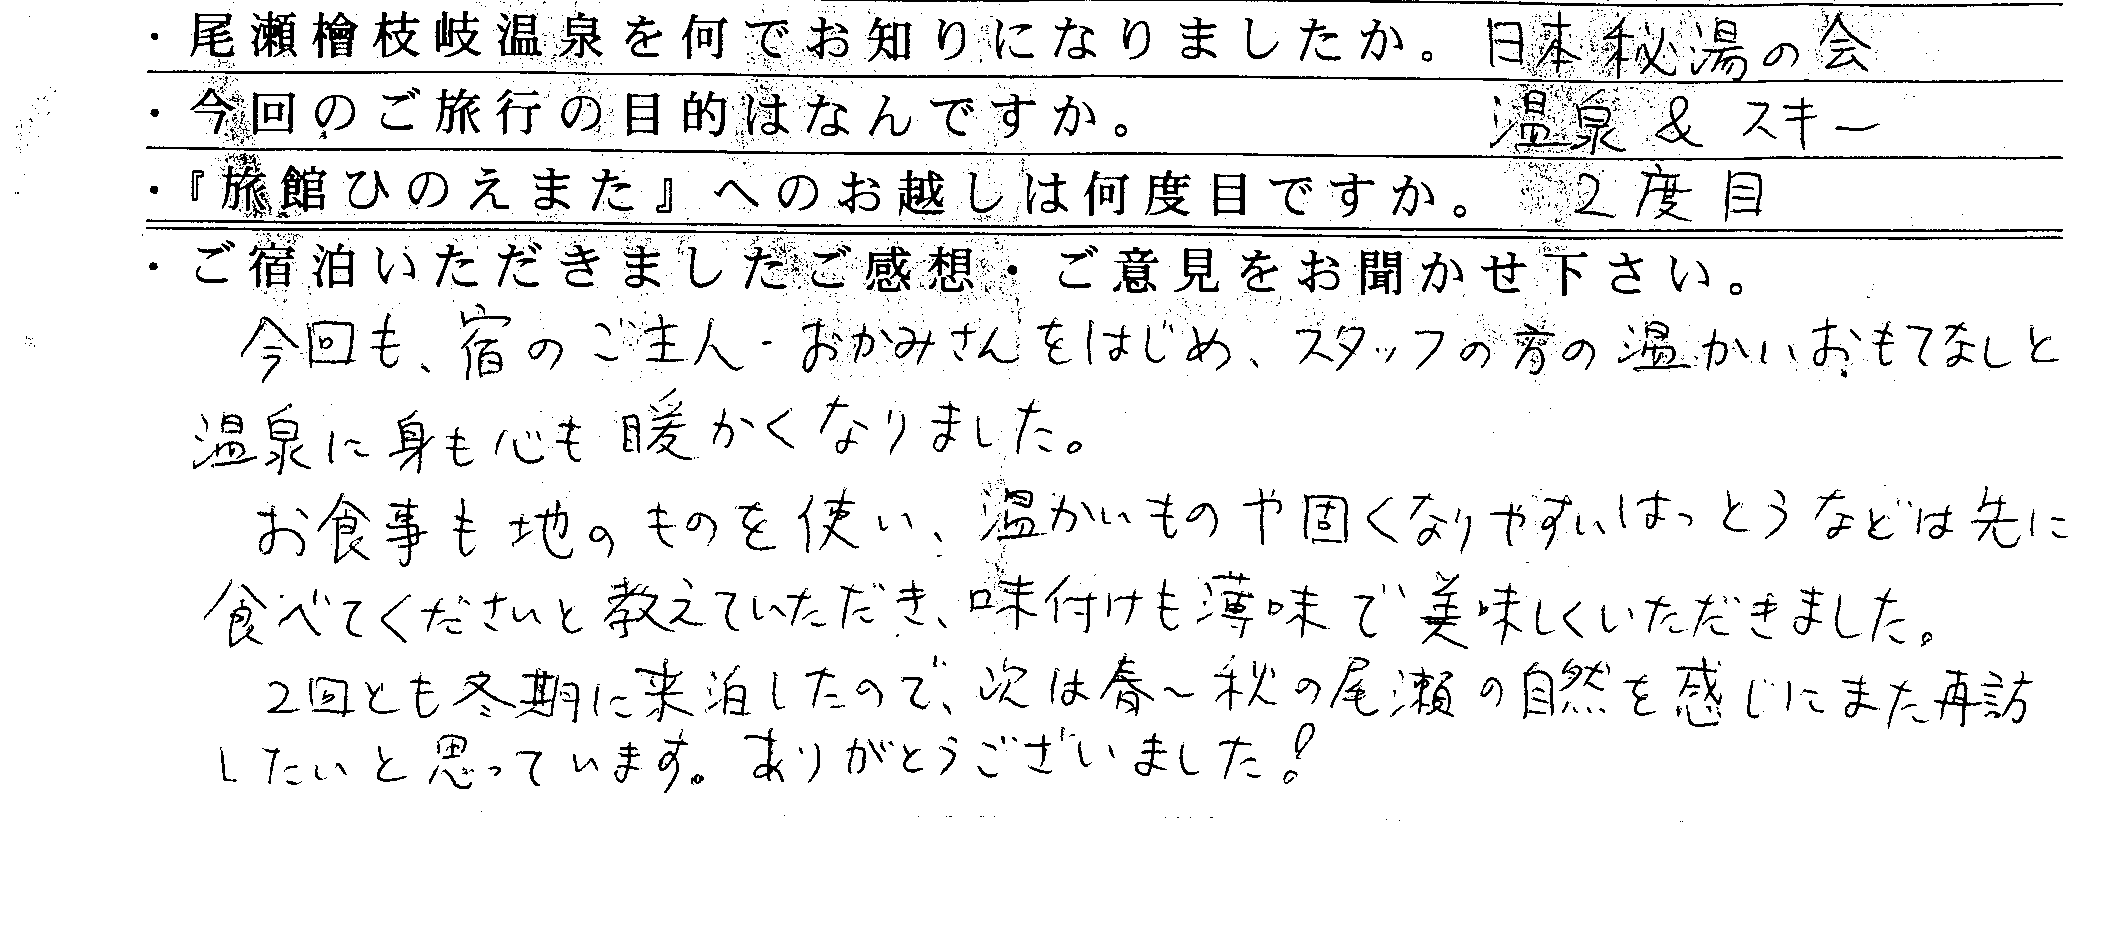 ・尾瀬檜枝岐温泉を何でお知りになりましたか。 日本秘湯の会
・今回のご旅行の目的はなんですか。 温泉 & スキー
・『旅館ひのえまた』へのお越しは何度目ですか。 2度目
・ご宿泊いただきましたご感想・ご意見をお聞かせ下さい。
今回も、宿のご主人・おかみさんをはじめ、スタッフの方の温かいおもてなしと
温泉に身も心も暖かくなりました。
お食事も地のものを使い、温かいものや固くなりやすいはっとうなどは先に
食べてくださいと教えていただき、味付けも薄味で美味しくいただきました。
2回とも冬期に来泊したので、次は春~秋の尾瀬の自然を感じにまた再訪
したいと思っています。ありがとうございました!